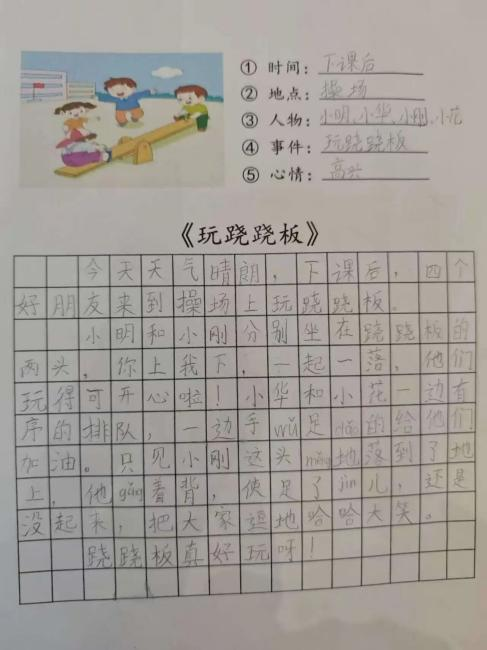 ① 时间：下课后
② 地点：操场
③ 人物：小明、小华、小刚、小花
④ 事件：玩跷跷板
⑤ 心情：高兴
《玩跷跷板》
今天天气晴朗，下课后，四个
好朋友来到操场上玩跷跷板。
小明和小刚分别坐在跷跷板的
两头，你上我下，一起一落，他们
玩得可开心啦！小华和小花一边有
序的排队，一边手wǔ足dǎo的给他们
加油。只见小刚这头měng地落到了地
上，他gǒng着背，使足了jìn儿，还是
没起来，把大家逗地哈哈大笑。
跷跷板真好玩呀！